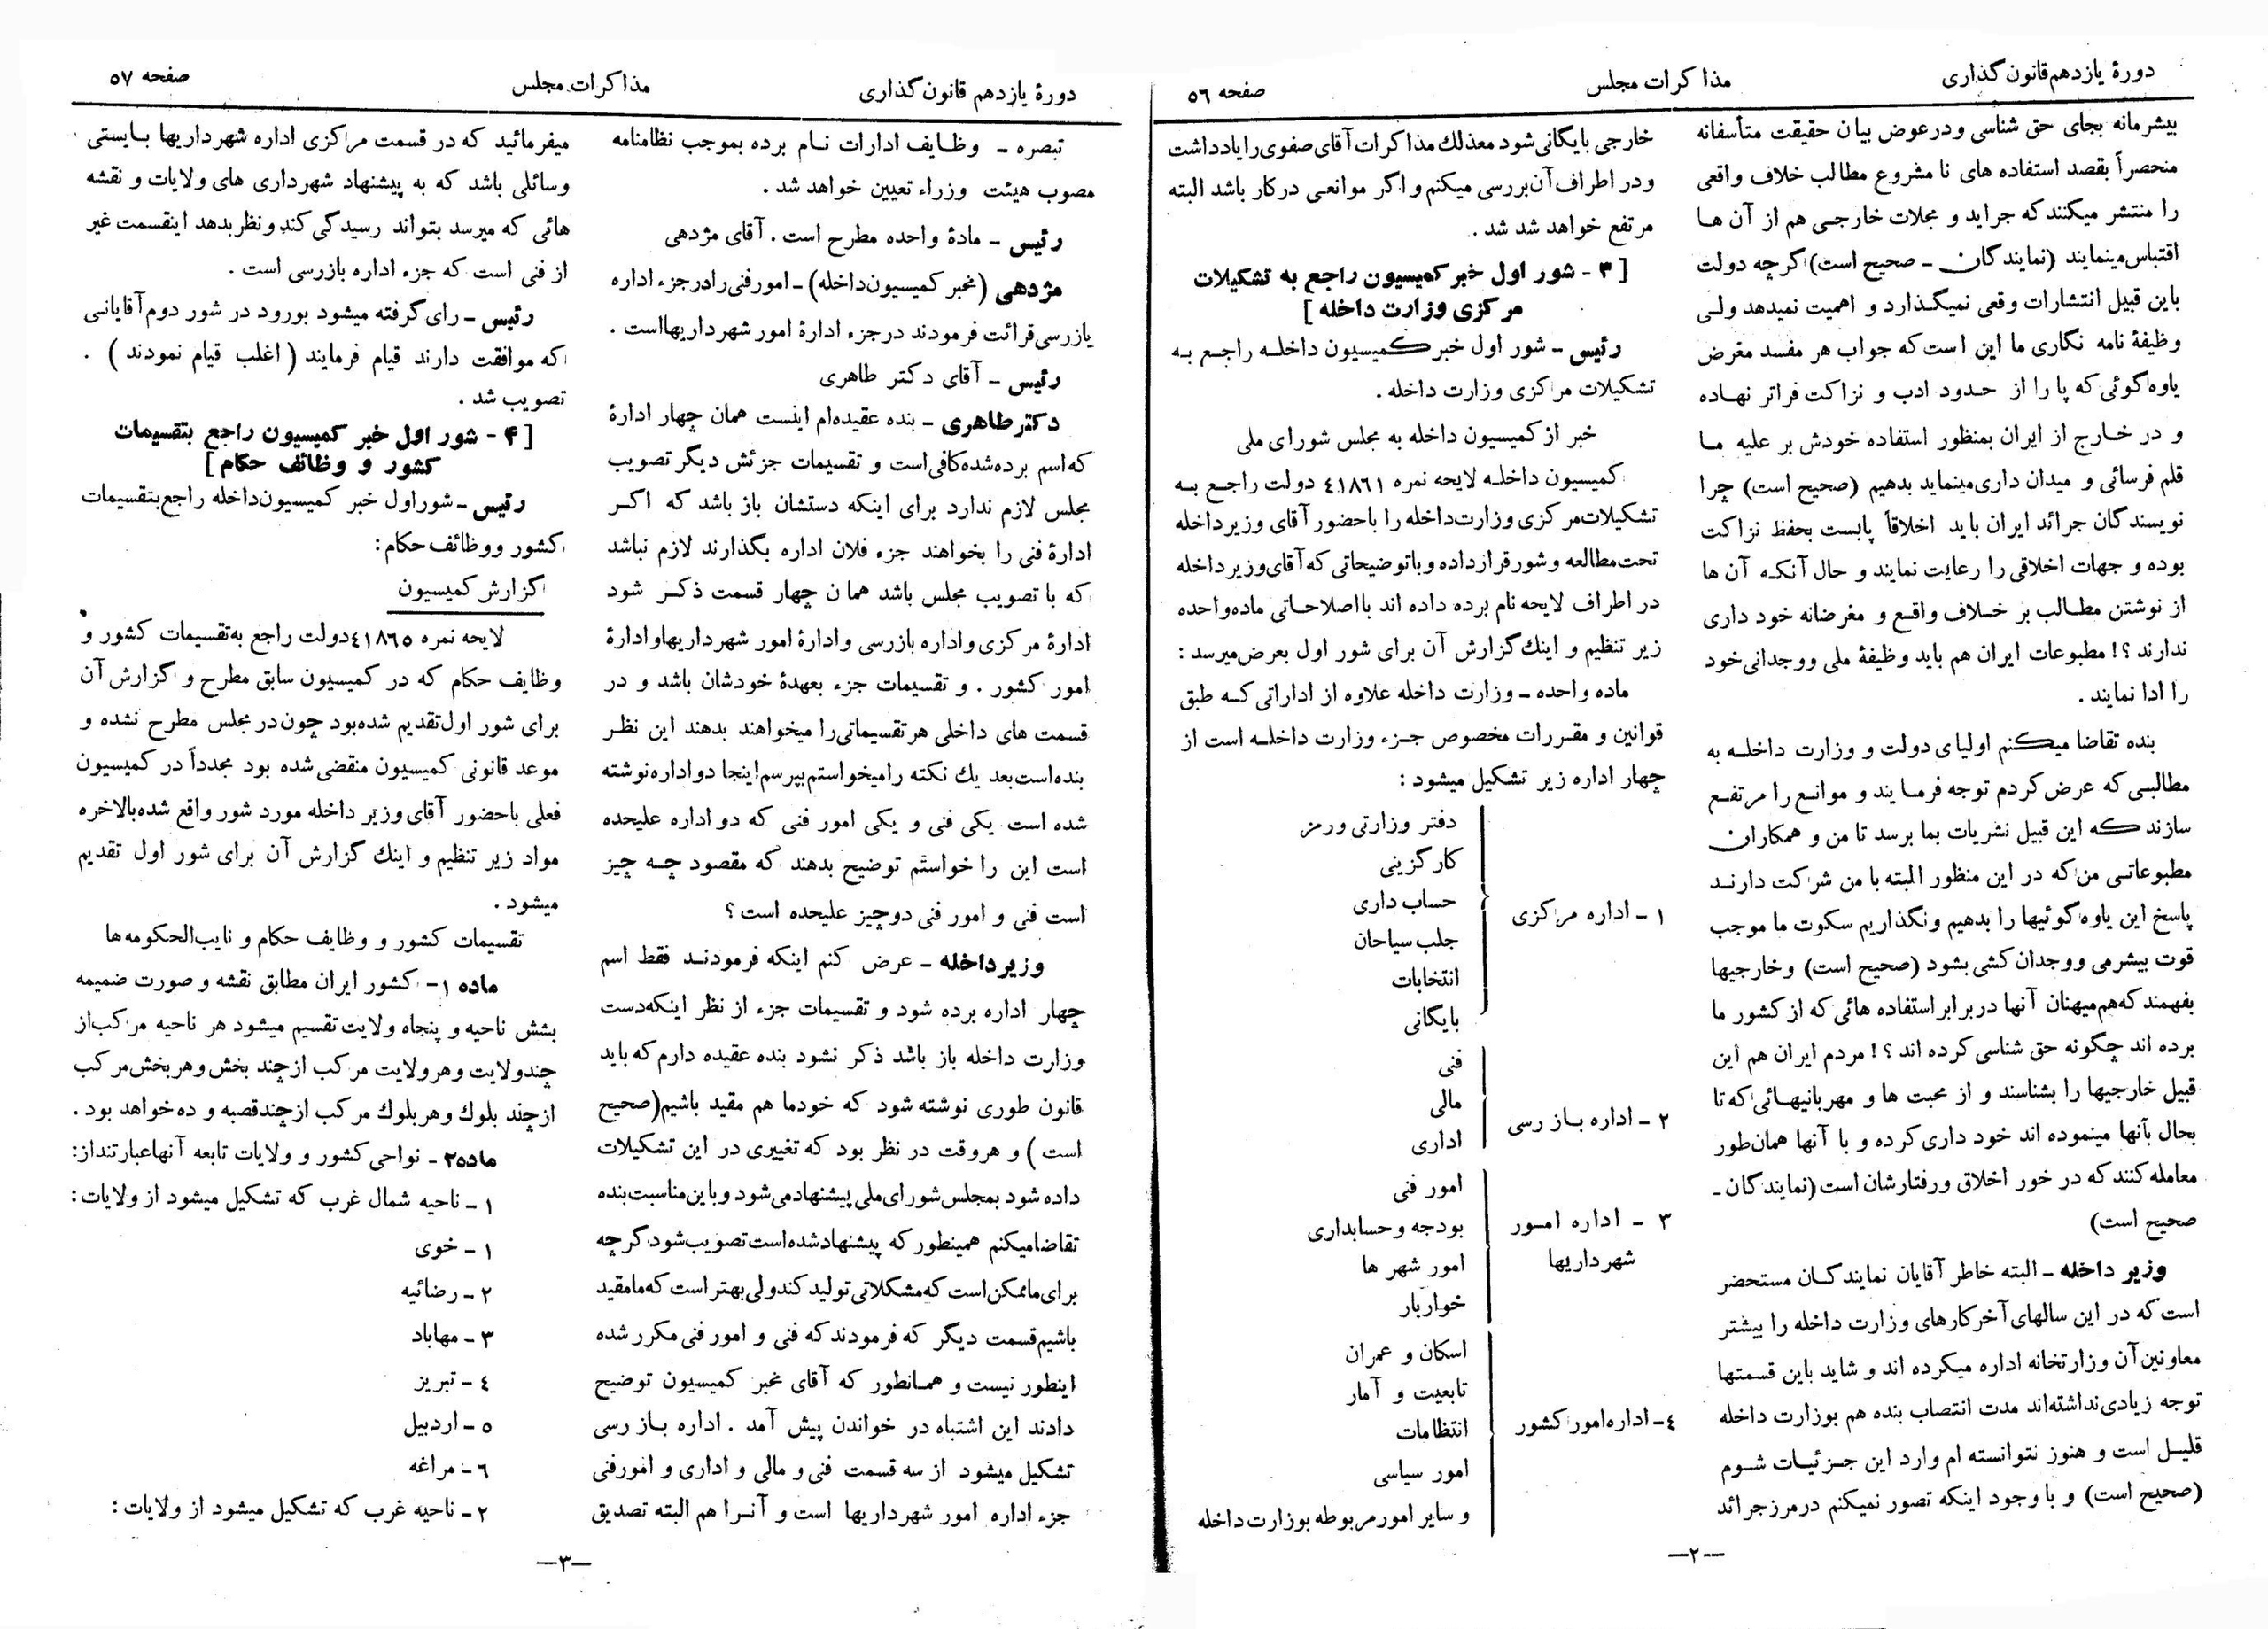 دورهٔ یازدهم قانون گذاری
مذاکرات مجلس
صفحه ٥٦
بیشرمانه بجای حق شناسی و در عوض بیان حقیقت متأسفانه
منحصراً بقصد استفاده های نا مشروع مطالب خلاف واقعی
را منتشر میکنند که جراید و مجلات خارجی هم از آن ها
اقتباس مینمایند (نمایندگان ـ صحیح است) اگرچه دولت
باین قبیل انتشارات وقعی نمیگذارد و اهمیت نمیدهد ولی
وظیفهٔ نامه نگاری ما این است که جواب هر مفسد مغرض
یاوه گوئی که پا را از حدود ادب و نزاکت فراتر نهاده
و در خارج از ایران بمنظور استفاده خودش بر علیه ما
قلم فرسائی و میدان داری مینماید بدهیم (صحیح است) چرا
نویسندگان جرائد ایران باید اخلاقاً پابست بحفظ نزاکت
بوده و جهات اخلاقی را رعایت نمایند و حال آنکه آن ها
از نوشتن مطالب بر خلاف واقع و مغرضانه خود داری
ندارند ؟! مطبوعات ایران هم باید وظیفهٔ ملی و وجدانی خود
را ادا نمایند .
بنده تقاضا میکنم اولیای دولت و وزارت داخله به
مطالبی که عرض کردم توجه فرمایند و موانع را مرتفع
سازند که این قبیل نشریات بما برسد تا من و همکاران
مطبوعاتی من که در این منظور البته با من شرکت دارند
پاسخ این یاوه گوئیها را بدهیم و نگذاریم سکوت ما موجب
قوت بیشرمی و وجدان کشی بشود (صحیح است) و خارجیها
بفهمند که هم میهنان آنها در برابر استفاده هائی که از کشور ما
برده اند چگونه حق شناسی کرده اند ؟! مردم ایران هم این
قبیل خارجیها را بشناسند و از محبت ها و مهربانیهائی که تا
بحال بآنها مینموده اند خود داری کرده و با آنها همان طور
معامله کنند که در خور اخلاق و رفتارشان است (نمایندگان ـ
صحیح است)
وزیر داخله ـ البته خاطر آقایان نمایندگان مستحضر
است که در این سالهای آخر کارهای وزارت داخله را بیشتر
معاونین آن وزارتخانه اداره میکرده اند و شاید باین قسمتها
توجه زیادی نداشته‌اند مدت انتصاب بنده هم بوزارت داخله
قلیل است و هنوز نتوانسته ام وارد این جزئیات شوم
(صحیح است) و با وجود اینکه تصور نمیکنم در مرز جرائد
خارجی بایگانی شود معذلك مذاکرات آقای صفوی را یادداشت
و در اطراف آن بررسی میکنم و اگر موانعی در کار باشد البته
مرتفع خواهد شد شد .
[ ۳ - شور اول خبر کمیسیون راجع به تشکیلات
مرکزی وزارت داخله ]
رئیس ـ شور اول خبر کمیسیون داخله راجع به
تشکیلات مرکزی وزارت داخله .
خبر از کمیسیون داخله به مجلس شورای ملی
کمیسیون داخله لایحه نمره ٤١٨٦١ دولت راجع به
تشکیلات مرکزی وزارت داخله را باحضور آقای وزیر داخله
تحت مطالعه و شور قرار داده و با توضیحاتی که آقای وزیر داخله
در اطراف لایحه نام برده داده اند با اصلاحاتی ماده واحده
زیر تنظیم و اینك گزارش آن برای شور اول بعرض میرسد :
ماده واحده ـ وزارت داخله علاوه از اداراتی که طبق
قوانین و مقررات مخصوص جزء وزارت داخله است از
چهار اداره زیر تشکیل میشود :
١ ـ اداره مرکزی
دفتر وزارتی و رمز
کارگزینی
حساب داری
جلب سیاحان
انتخابات
بایگانی
٢ ـ اداره باز رسی
فنی
مالی
اداری
٣ ـ اداره امور
شهرداریها
امور فنی
بودجه و حسابداری
امور شهر ها
خواربار
٤ ـ اداره امور کشور
اسکان و عمران
تابعیت و آمار
انتظامات
امور سیاسی
و سایر امور مربوطه بوزارت داخله
—٢—
دورهٔ یازدهم قانون گذاری
مذاکرات مجلس
صفحه ٥٧
تبصره ـ وظایف ادارات نام برده بموجب نظامنامه
مصوب هیئت وزراء تعیین خواهد شد .
رئیس ـ مادهٔ واحده مطرح است . آقای مژدهی
مژدهی (مخبر کمیسیون داخله) ـ امور فنی را در جزء اداره
بازرسی قرائت فرمودند در جزء ادارهٔ امور شهرداریها است .
رئیس ـ آقای دکتر طاهری
دکتر طاهری ـ بنده عقیده‌ام اینست همان چهار ادارهٔ
که اسم برده شده کافی است و تقسیمات جزئش دیگر تصویب
مجلس لازم ندارد برای اینکه دستشان باز باشد که اگر
ادارهٔ فنی را بخواهند جزء فلان اداره بگذارند لازم نباشد
که با تصویب مجلس باشد همان چهار قسمت ذکر شود
ادارهٔ مرکزی و اداره بازرسی و ادارهٔ امور شهرداریها و ادارهٔ
امور کشور . و تقسیمات جزء بعهدهٔ خودشان باشد و در
قسمت های داخلی هر تقسیماتی را میخواهند بدهند این نظر
بنده است بعد یك نکته را میخواستم بپرسم اینجا دو اداره نوشته
شده است یکی فنی و یکی امور فنی که دو اداره علیحده
است این را خواستم توضیح بدهند که مقصود چه چیز
است فنی و امور فنی دو چیز علیحده است ؟
وزیر داخله ـ عرض کنم اینکه فرمودند فقط اسم
چهار اداره برده شود و تقسیمات جزء از نظر اینکه دست
وزارت داخله باز باشد ذکر نشود بنده عقیده دارم که باید
قانون طوری نوشته شود که خودما هم مقید باشیم (صحیح
است) و هروقت در نظر بود که تغییری در این تشکیلات
داده شود بمجلس شورای ملی پیشنهاد می شود و باین مناسبت بنده
تقاضا میکنم همینطور که پیشنهاد شده است تصویب شود گرچه
برای ما ممکن است که مشکلاتی تولید کند ولی بهتر است که ما مقید
باشیم قسمت دیگر که فرمودند که فنی و امور فنی مکرر شده
اینطور نیست و همانطور که آقای مخبر کمیسیون توضیح
دادند این اشتباه در خواندن پیش آمد . اداره باز رسی
تشکیل میشود از سه قسمت فنی و مالی و اداری و امور فنی
جزء اداره امور شهرداریها است و آنرا هم البته تصدیق
میفرمائید که در قسمت مرکزی اداره شهرداریها بایستی
وسائلی باشد که به پیشنهاد شهرداری های ولایات و نقشه
هائی که میرسد بتواند رسیدگی کند و نظر بدهد اینقسمت غیر
از فنی است که جزء اداره بازرسی است .
رئیس ـ رای گرفته میشود بورود در شور دوم آقایانی
که موافقت دارند قیام فرمایند ( اغلب قیام نمودند ) .
تصویب شد .
[ ۴ - شور اول خبر کمیسیون راجع بتقسیمات
کشور و وظائف حکام ]
رئیس ـ شور اول خبر کمیسیون داخله راجع بتقسیمات
کشور و وظائف حکام :
گزارش کمیسیون
لایحه نمره ٤١٨٦٥ دولت راجع به تقسیمات کشور و
وظایف حکام که در کمیسیون سابق مطرح و گزارش آن
برای شور اول تقدیم شده بود چون در مجلس مطرح نشده و
موعد قانونی کمیسیون منقضی شده بود مجدداً در کمیسیون
فعلی باحضور آقای وزیر داخله مورد شور واقع شده بالاخره
مواد زیر تنظیم و اینك گزارش آن برای شور اول تقدیم
میشود .
تقسیمات کشور و وظایف حکام و نایب‌الحکومه ها
ماده ١ ـ کشور ایران مطابق نقشه و صورت ضمیمه
بشش ناحیه و پنجاه ولایت تقسیم میشود هر ناحیه مرکب از
چند ولایت و هر ولایت مرکب از چند بخش و هر بخش مرکب
از چند بلوك و هر بلوك مرکب از چند قصبه و ده خواهد بود .
ماده ٢ ـ نواحی کشور و ولایات تابعه آنها عبارتند از:
١ ـ ناحیه شمال غرب که تشکیل میشود از ولایات :
١ ـ خوی
٢ ـ رضائیه
٣ ـ مهاباد
٤ ـ تبریز
٥ ـ اردبیل
٦ ـ مراغه
٢ ـ ناحیه غرب که تشکیل میشود از ولایات :
—٣—